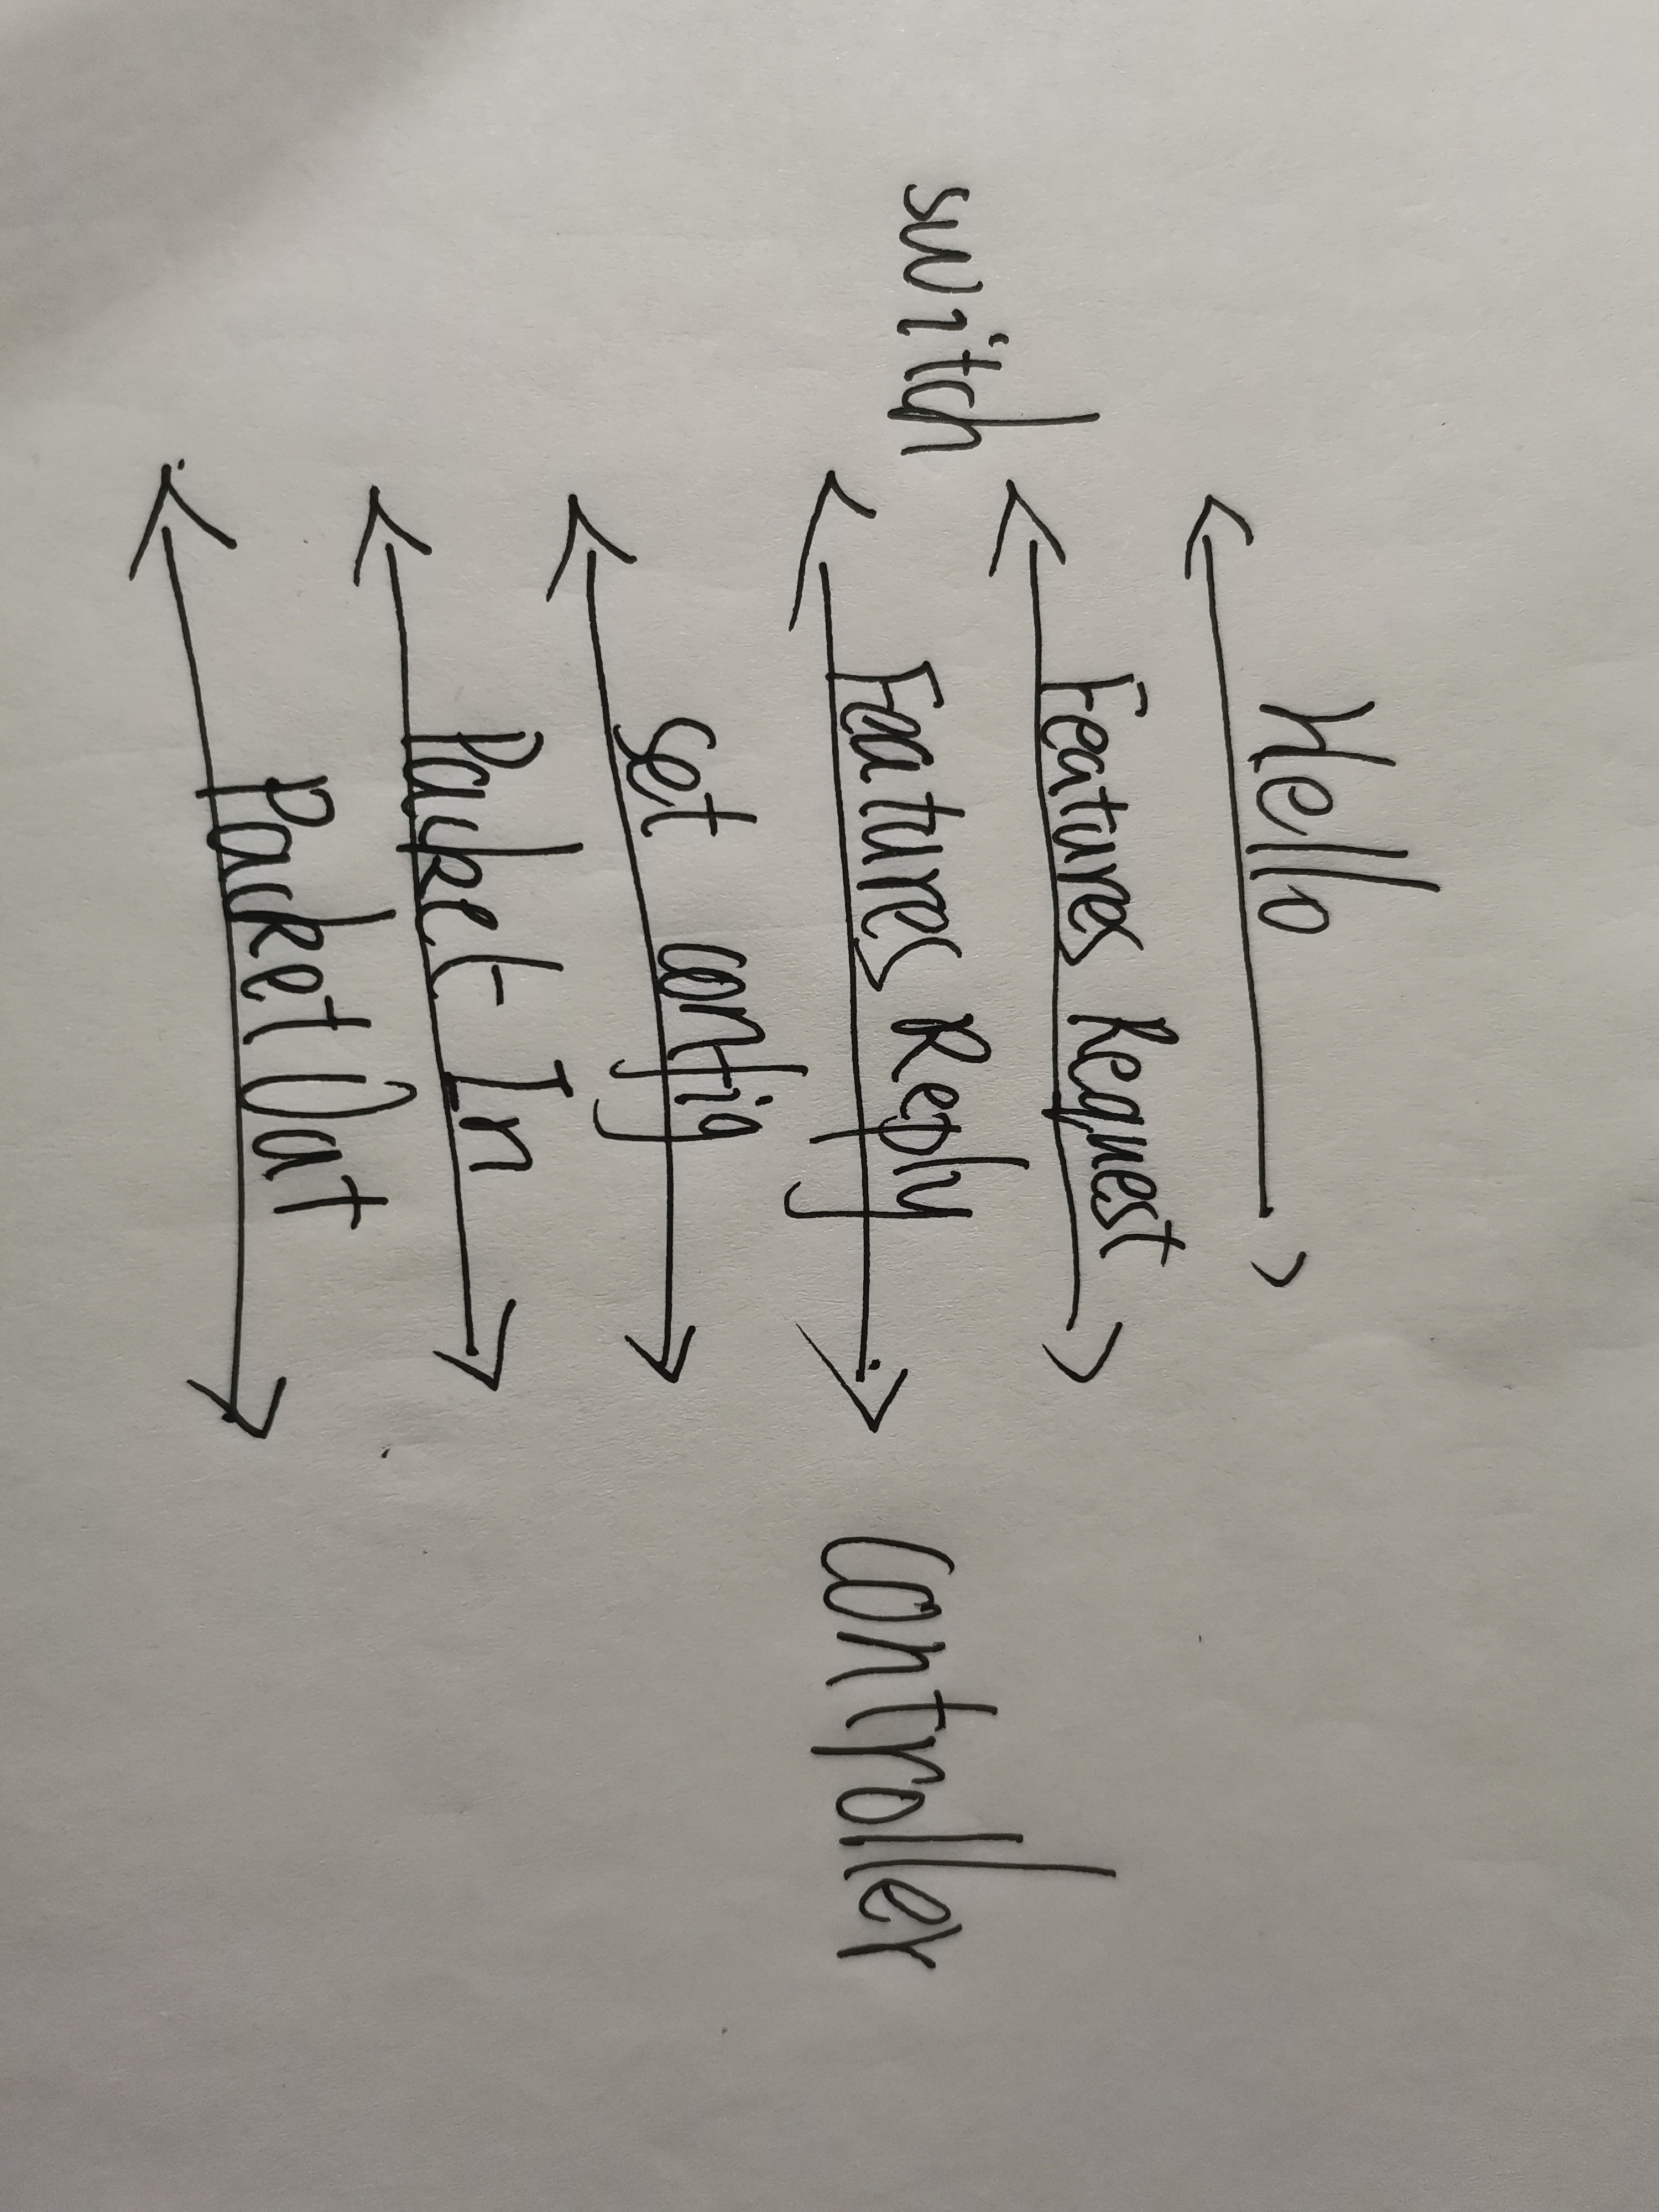 Hello
Features Request
switch
Features Reply
controller
set config
Packet In
Packet Out